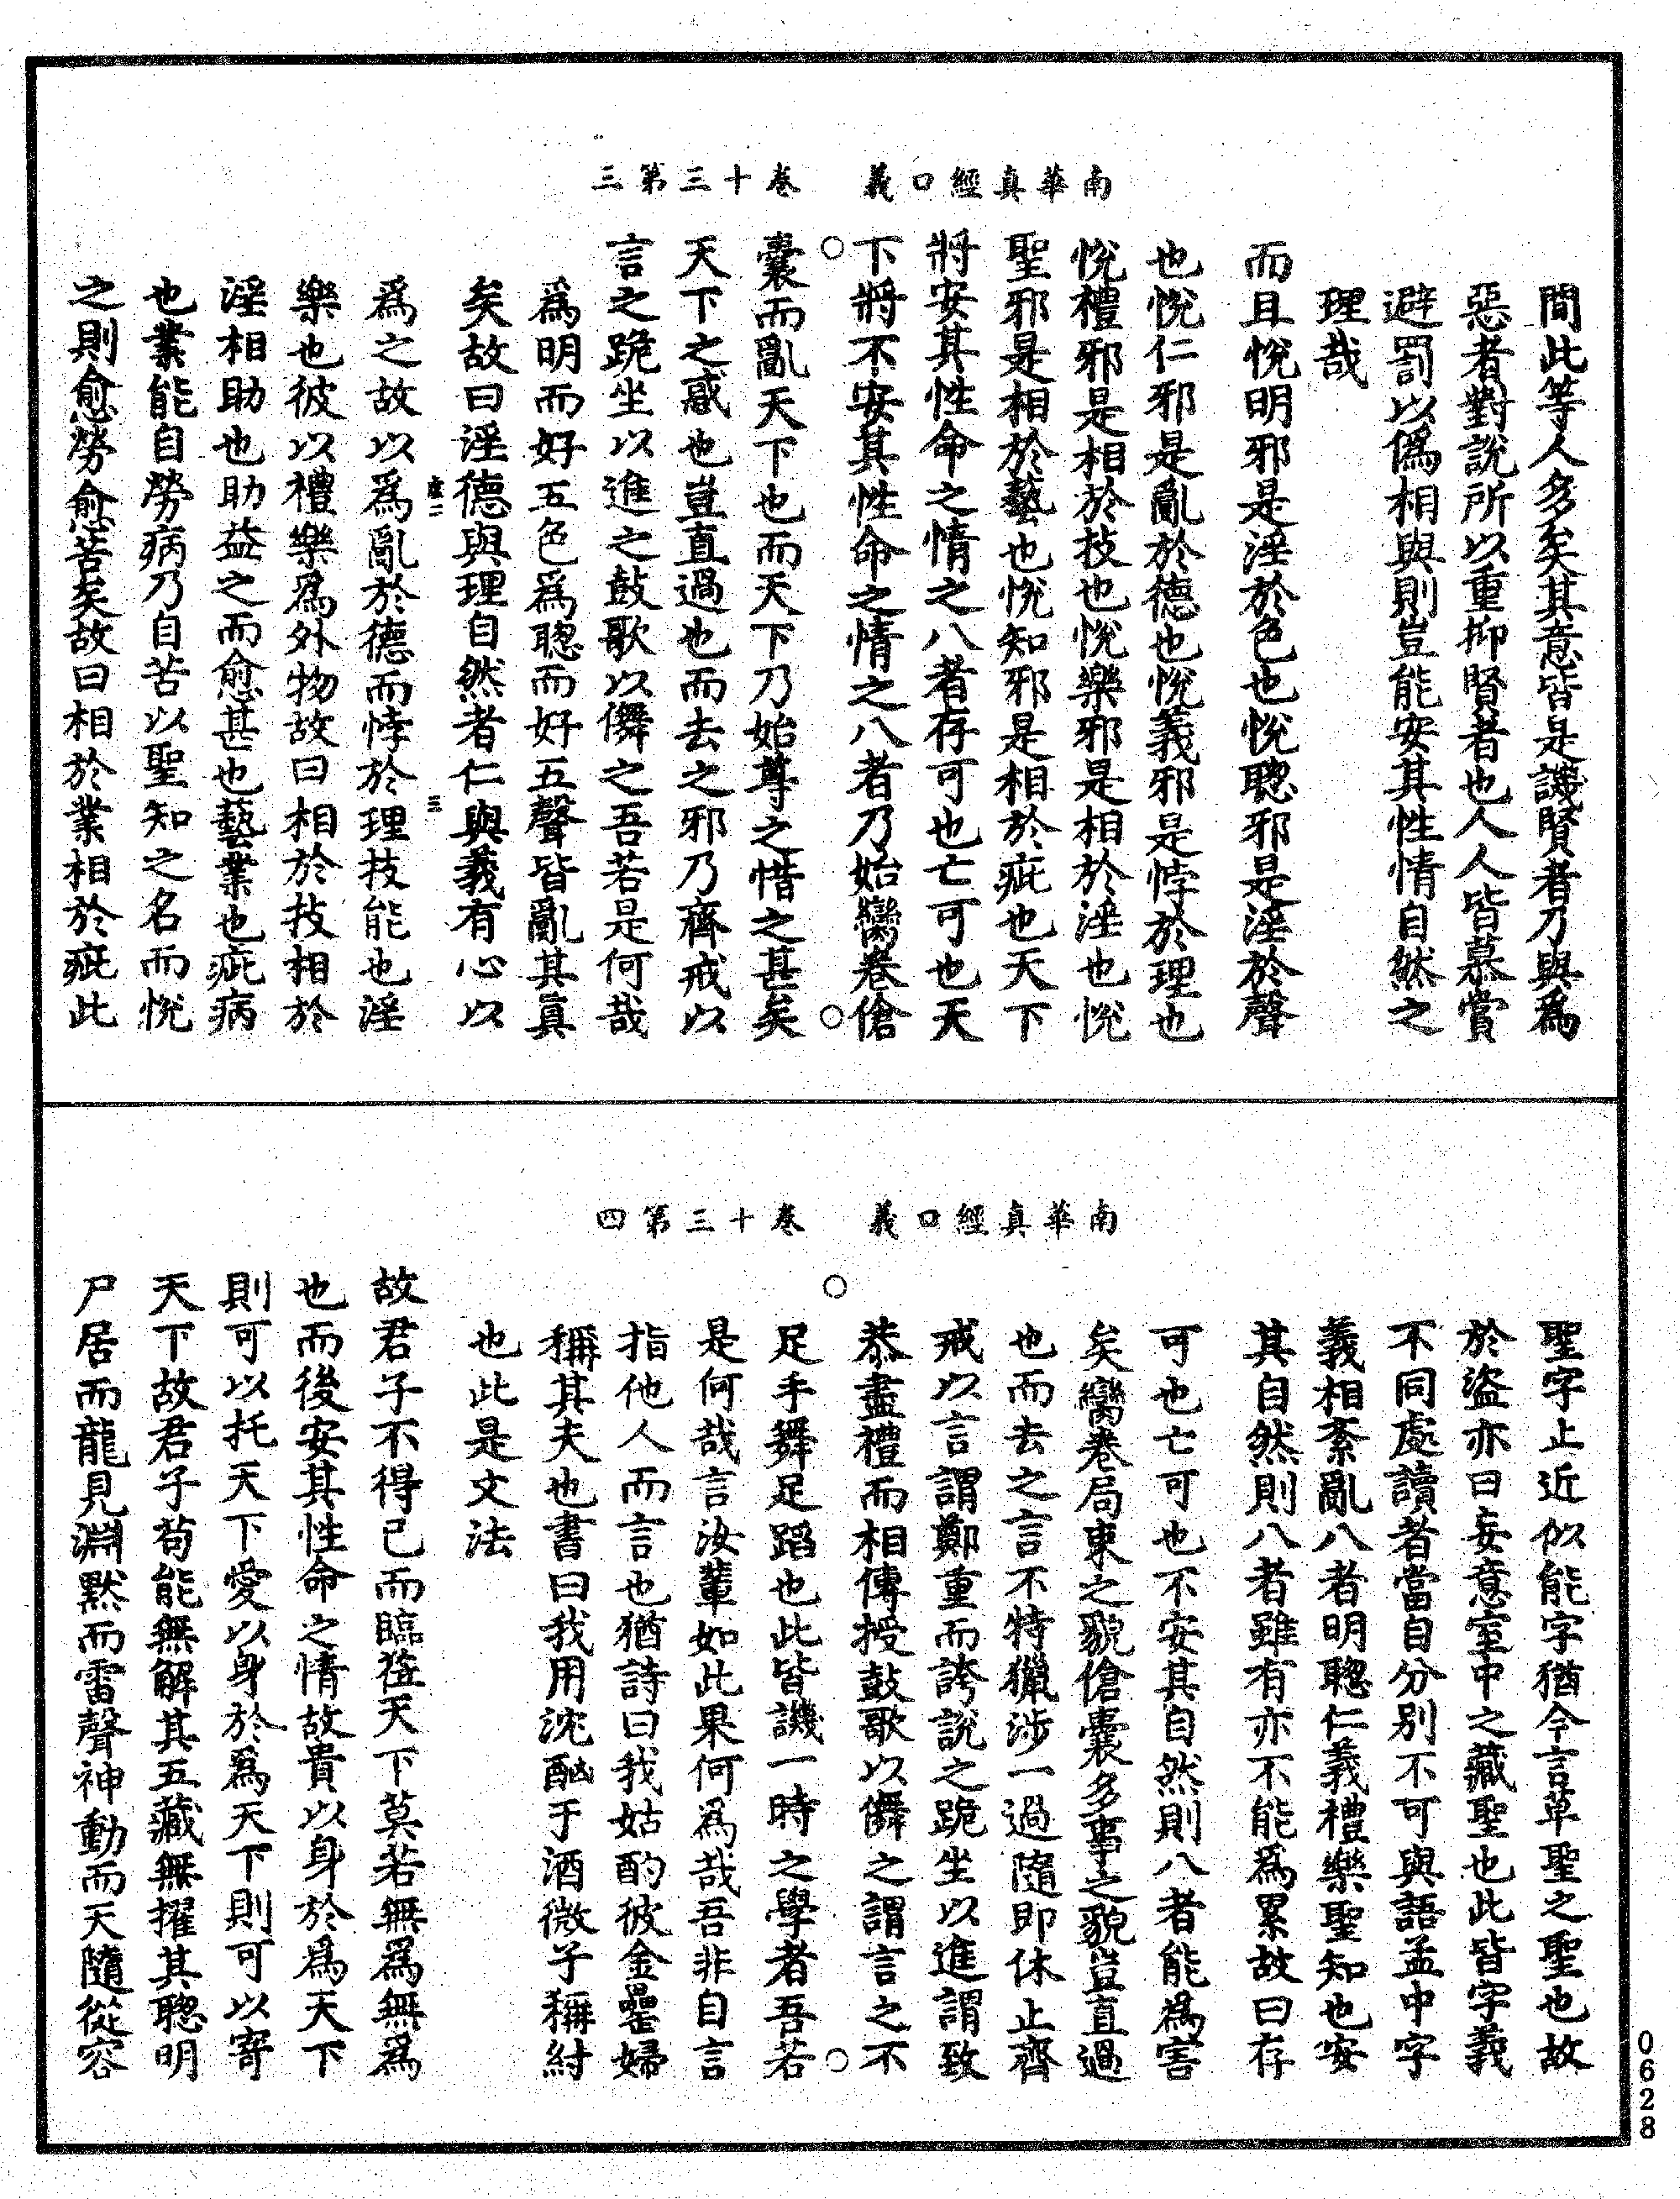 南華真經口義　卷十三第三
間此等人多矣其意皆是譏賢者乃與爲
惡者對說所以重抑賢者也人人皆慕賞
避罰以僞相與則豈能安其性情自然之
理哉
而且悅明邪是淫於色也悅聰邪是淫於聲
也悅仁邪是亂於德也悅義邪是悖於理也
悅禮邪是相於技也悅樂邪是相於淫也悅
聖邪是相於藝也悅知邪是相於疵也天下
將安其性命之情之八者存可也亡可也天
下將不安其性命之情之八者乃始臠卷傖
囊而亂天下也而天下乃始尊之惜之甚矣
天下之惑也豈直過也而去之邪乃齊戒以
言之跪坐以進之鼓歌以儛之吾若是何哉
爲明而好五色爲聰而好五聲皆亂其真
矣故曰淫德與理自然者仁與義有心以
爲之故以爲亂於德而悖於理技能也淫
樂也彼以禮樂爲外物故曰相於技相於
淫相助也助益之而愈甚也藝業也疵病
也業能自勞病乃自苦以聖知之名而悅
之則愈勞愈苦矣故曰相於業相於疵此
南華真經口義　卷十三第四
聖字止近似能字猶今言草聖之聖也故
於盜亦曰妄意室中之藏聖也此皆字義
不同處讀者當自分別不可與語孟中字
義相紊亂八者明聰仁義禮樂聖知也安
其自然則八者雖有亦不能爲累故曰存
可也亡可也不安其自然則八者能爲害
矣臠卷局束之貌傖囊多事之貌豈直過
也而去之言不特獵涉一過隨即休止齊
戒以言謂鄭重而誇說之跪坐以進謂致
恭盡禮而相傳授鼓歌以儛之謂言之不
足手舞足蹈也此皆譏一時之學者吾若
是何哉言汝輩如此果何爲哉吾非自言
指他人而言也猶詩曰我姑酌彼金罍婦
稱其夫也書曰我用沈酗于酒微子稱紂
也此是文法
故君子不得已而臨莅天下莫若無爲無爲
也而後安其性命之情故貴以身於爲天下
則可以托天下愛以身於爲天下則可以寄
天下故君子苟能無解其五藏無擢其聰明
尸居而龍見淵默而雷聲神動而天隨從容
0628